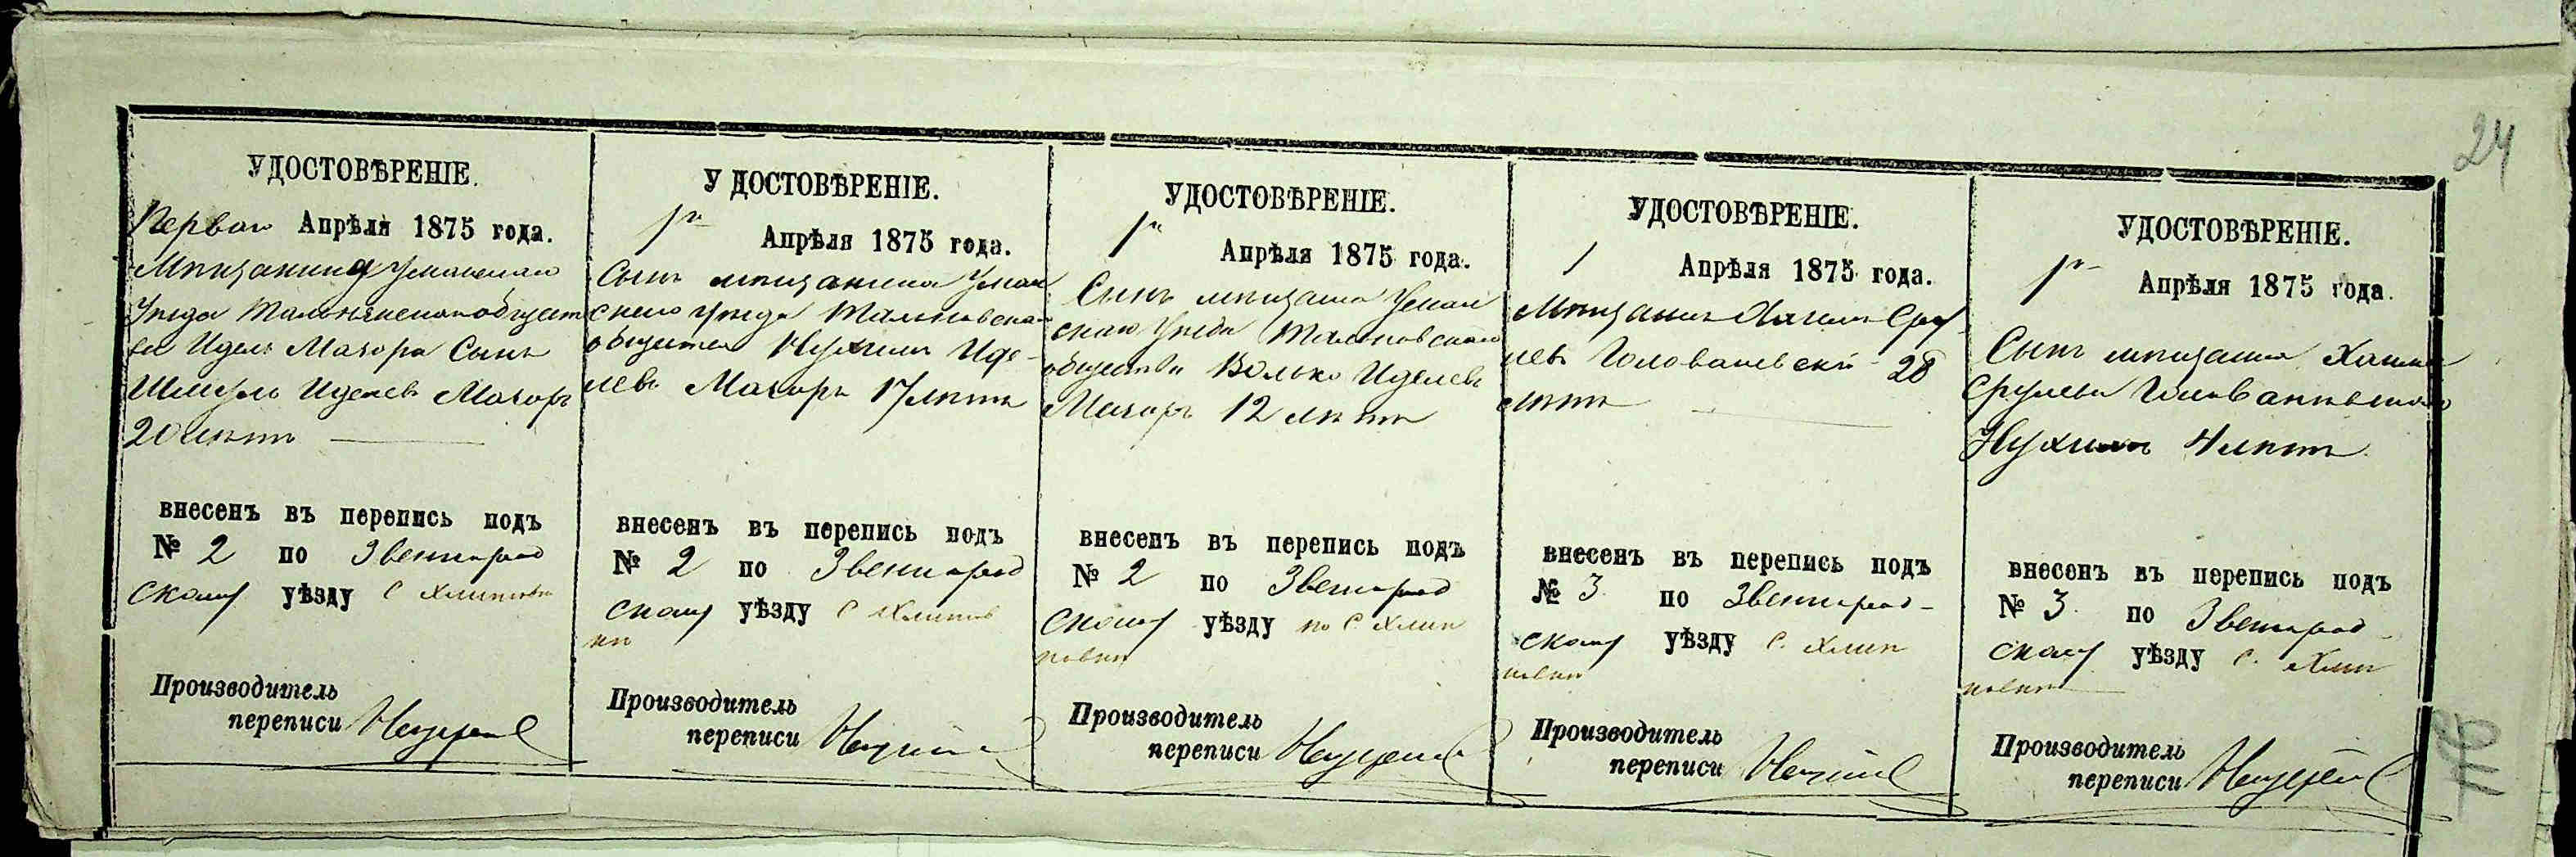 24
УДОСТОВѢРЕНІЕ.
Перваго Апрѣля 1875 года.
Мѣщанина Уманскаго
Уѣзда Тальнянскаго общест
ва Идель Махора Сынъ
Шмуль Иделевъ Махоръ
20 лѣтъ
внесенъ въ перепись подъ
№ 2 по Звенигород
скому уѣзду с Хлиповки
Производитель
переписи
УДОСТОВѢРЕНІЕ.
1го Апрѣля 1875 года.
Сынъ мѣщанина Уман
скаго уѣзда Тальновскаго
общества Нухимъ Иде-
левъ Махоръ 17 лѣтъ
внесенъ въ перепись подъ
№ 2 по Звенигород
скому уѣзду с Хлипов
ки
Производитель
переписи
УДОСТОВѢРЕНІЕ.
1го Апрѣля 1875 года.
Сынъ мѣщанина Уман
скаго Уѣзда Тальновскаго
общества Волько Иделевъ
Махоръ 12 лѣтъ
внесенъ въ перепись подъ
№ 2 по Звенигород
скому уѣзду по с Хлип
повки
Производитель
переписи
УДОСТОВѢРЕНІЕ.
1 Апрѣля 1875 года.
Мѣщанинъ Хаимъ Сру-
левъ Головановскій 28
лѣтъ
внесенъ въ перепись подъ
№ 3 по Звенигород-
скому уѣзду с. Хлип
повки
Производитель
переписи
УДОСТОВѢРЕНІЕ.
1го Апрѣля 1875 года.
Сынъ мѣщанина Хаима
Срулева Головановскаго
Нухимъ 4 лѣтъ
внесенъ въ перепись подъ
№ 3 по Звенигород-
скому уѣзду с. Хлип
повки
Производитель
переписи